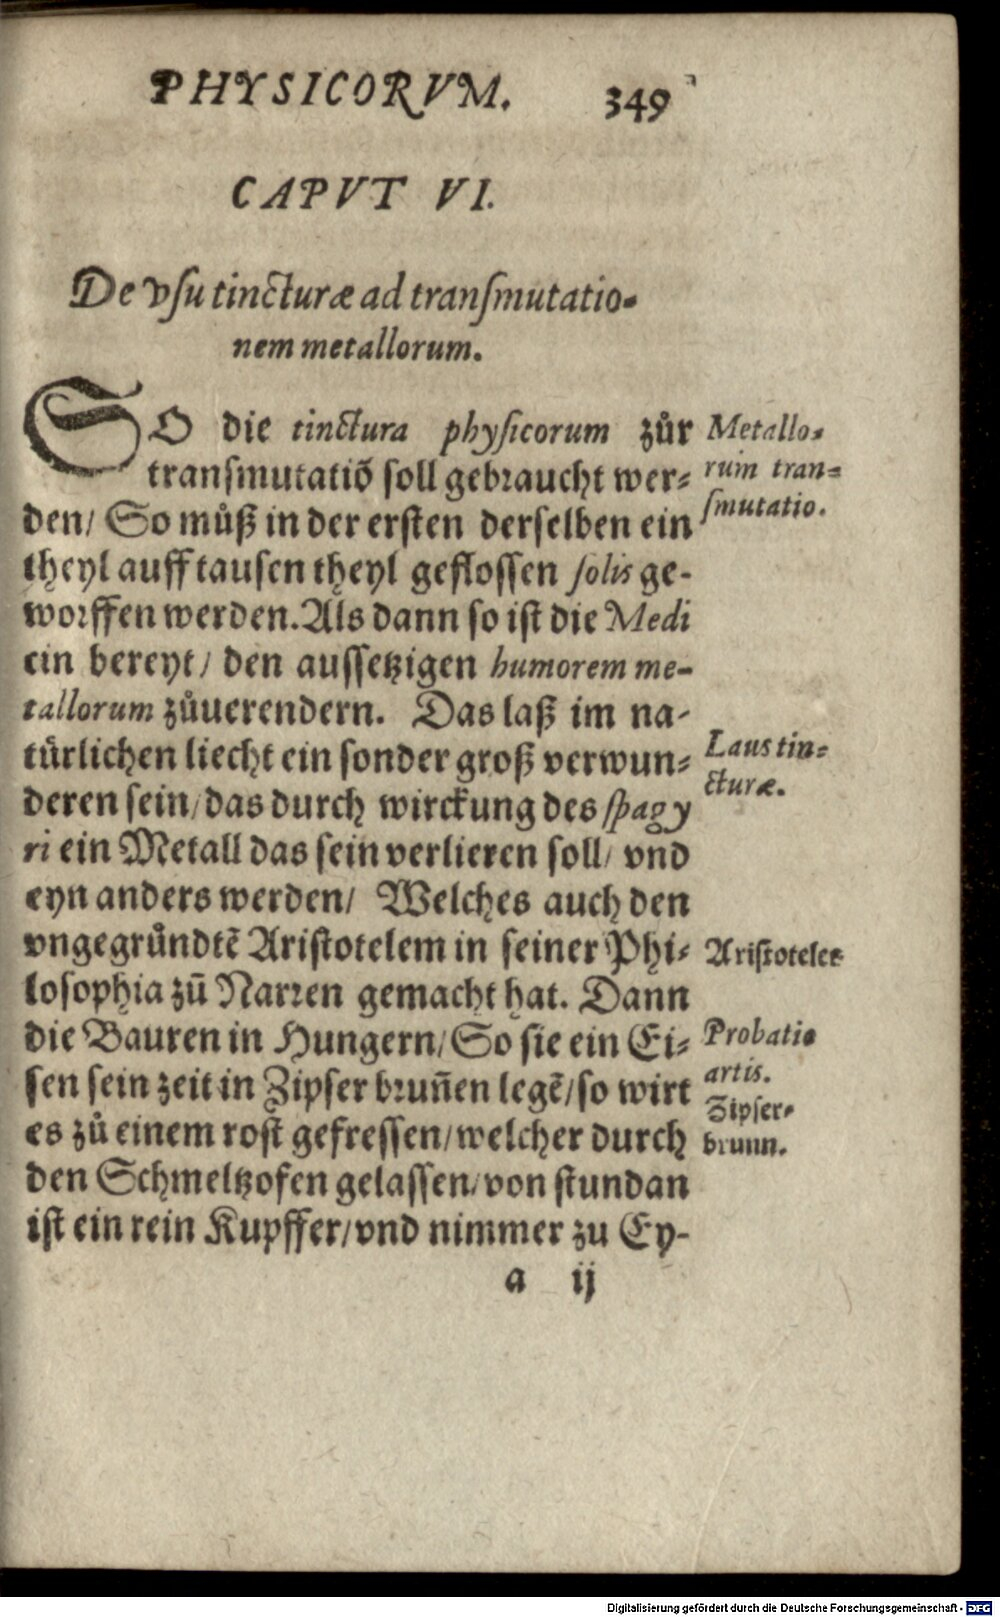 PHYSICORVM. 349
CAPVT VI.
De vſu tincturæ ad tranſmutatio-
nem metallorum.
SO die tinctura phyſicorum zůr
tranſmutatiõ ſoll gebraucht wer-
den/ So můß in der erſten derſelben ein
theyl auff tauſen theyl gefloſſen ſolis ge-
worffen werden. Als dann ſo iſt die Medi
cin bereyt/ den auſſetzigen humorem me-
tallorum zůuerendern. Das laß im na-
türlichen liecht ein ſonder groß verwun-
deren ſein/ das durch wirckung des ſpagy
ri ein Metall das ſein verlieren ſoll/ vnd
eyn anders werden/ Welches auch den
vngegründtẽ Ariſtotelem in ſeiner Phi-
loſophia zũ Narren gemacht hat. Dann
die Bauren in Hungern/ So ſie ein Ei-
ſen ſein zeit in Zipſer brun̄en legẽ/ ſo wirt
es zů einem roſt gefreſſen/ welcher durch
den Schmeltzofen gelaſſen/ von ſtundan
iſt ein rein Kupffer/ vnd nimmer zu Ey-
a ij
Metallo-
rum tran-
ſmutatio.
Laus tin-
cturæ.
Ariſtoteles
Probatio
artis.
Zipſer-
brunn.
Digitalisierung gefördert durch die Deutsche Forschungsgemeinschaft - DFG